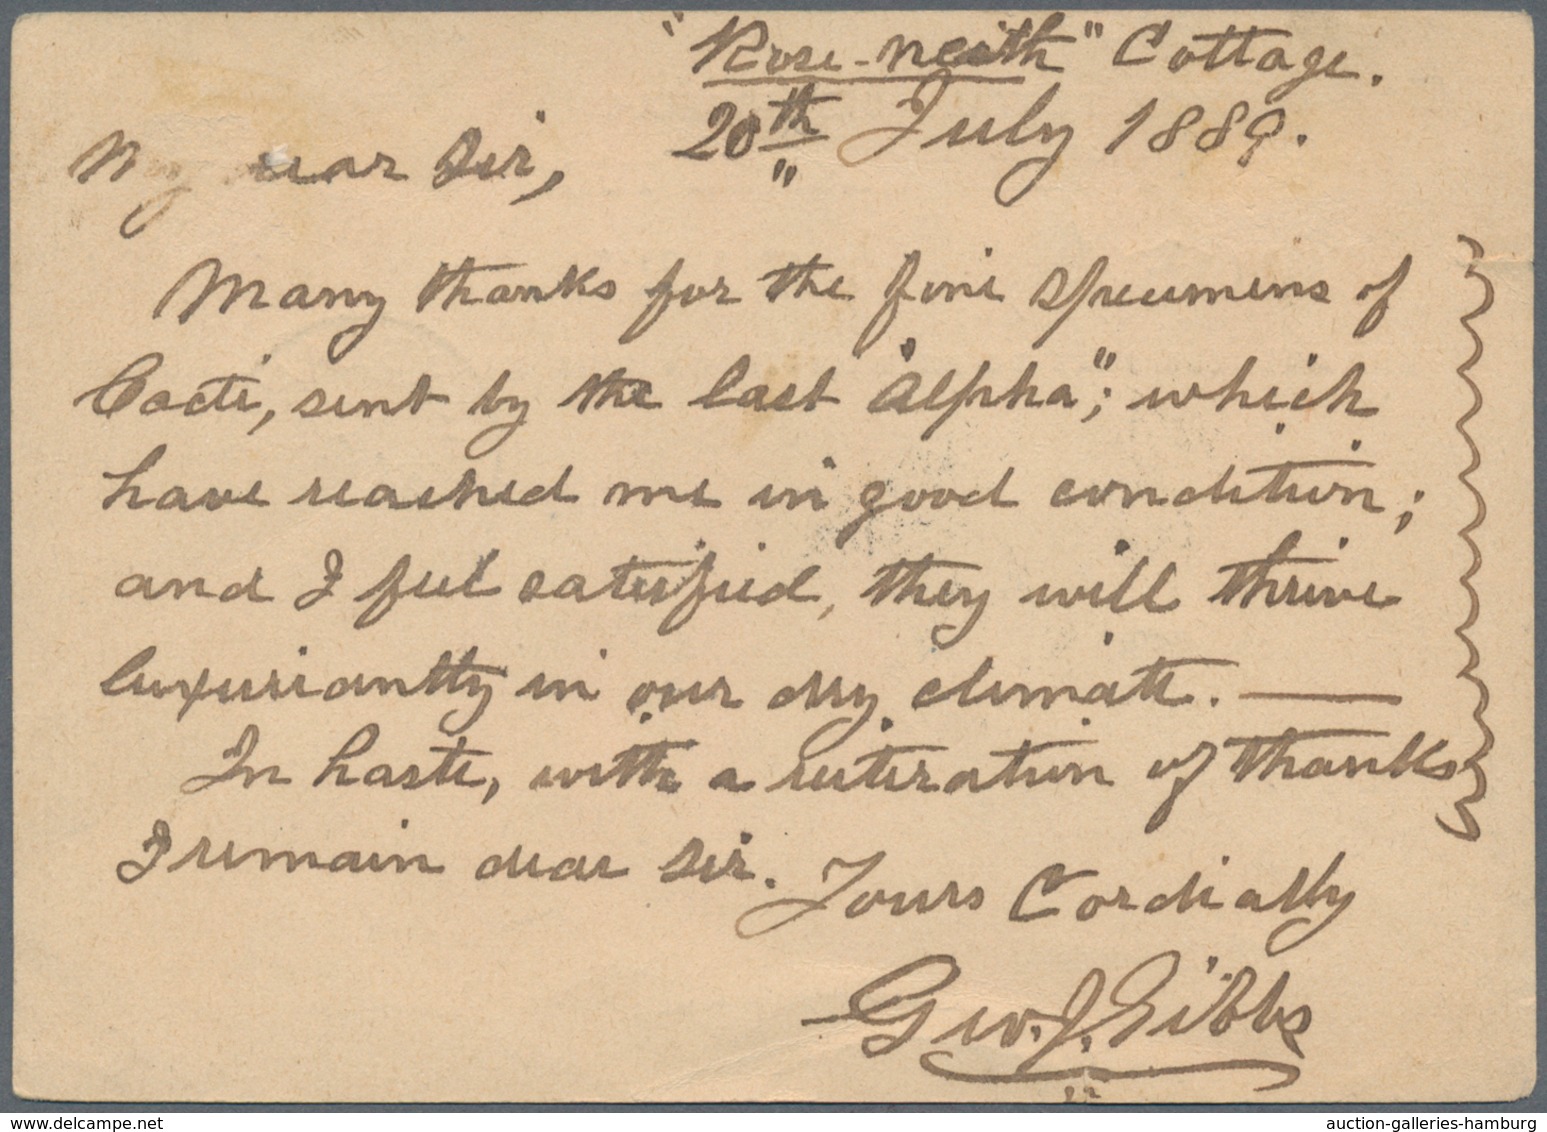 "Rose-neath" Cottage.
20th July 1889.
My dear Sir,
Many thanks for the fine specimens of
Cacti, sent by the last "Alpha"; which
have reached me in good condition;
and I feel satisfied, they will thrive
luxuriantly in our dry climate. —
In haste, with a reiteration of thanks
I remain dear Sir.
Yours Cordially
Geo. J. Gibbs
auction-galleries-hamburg